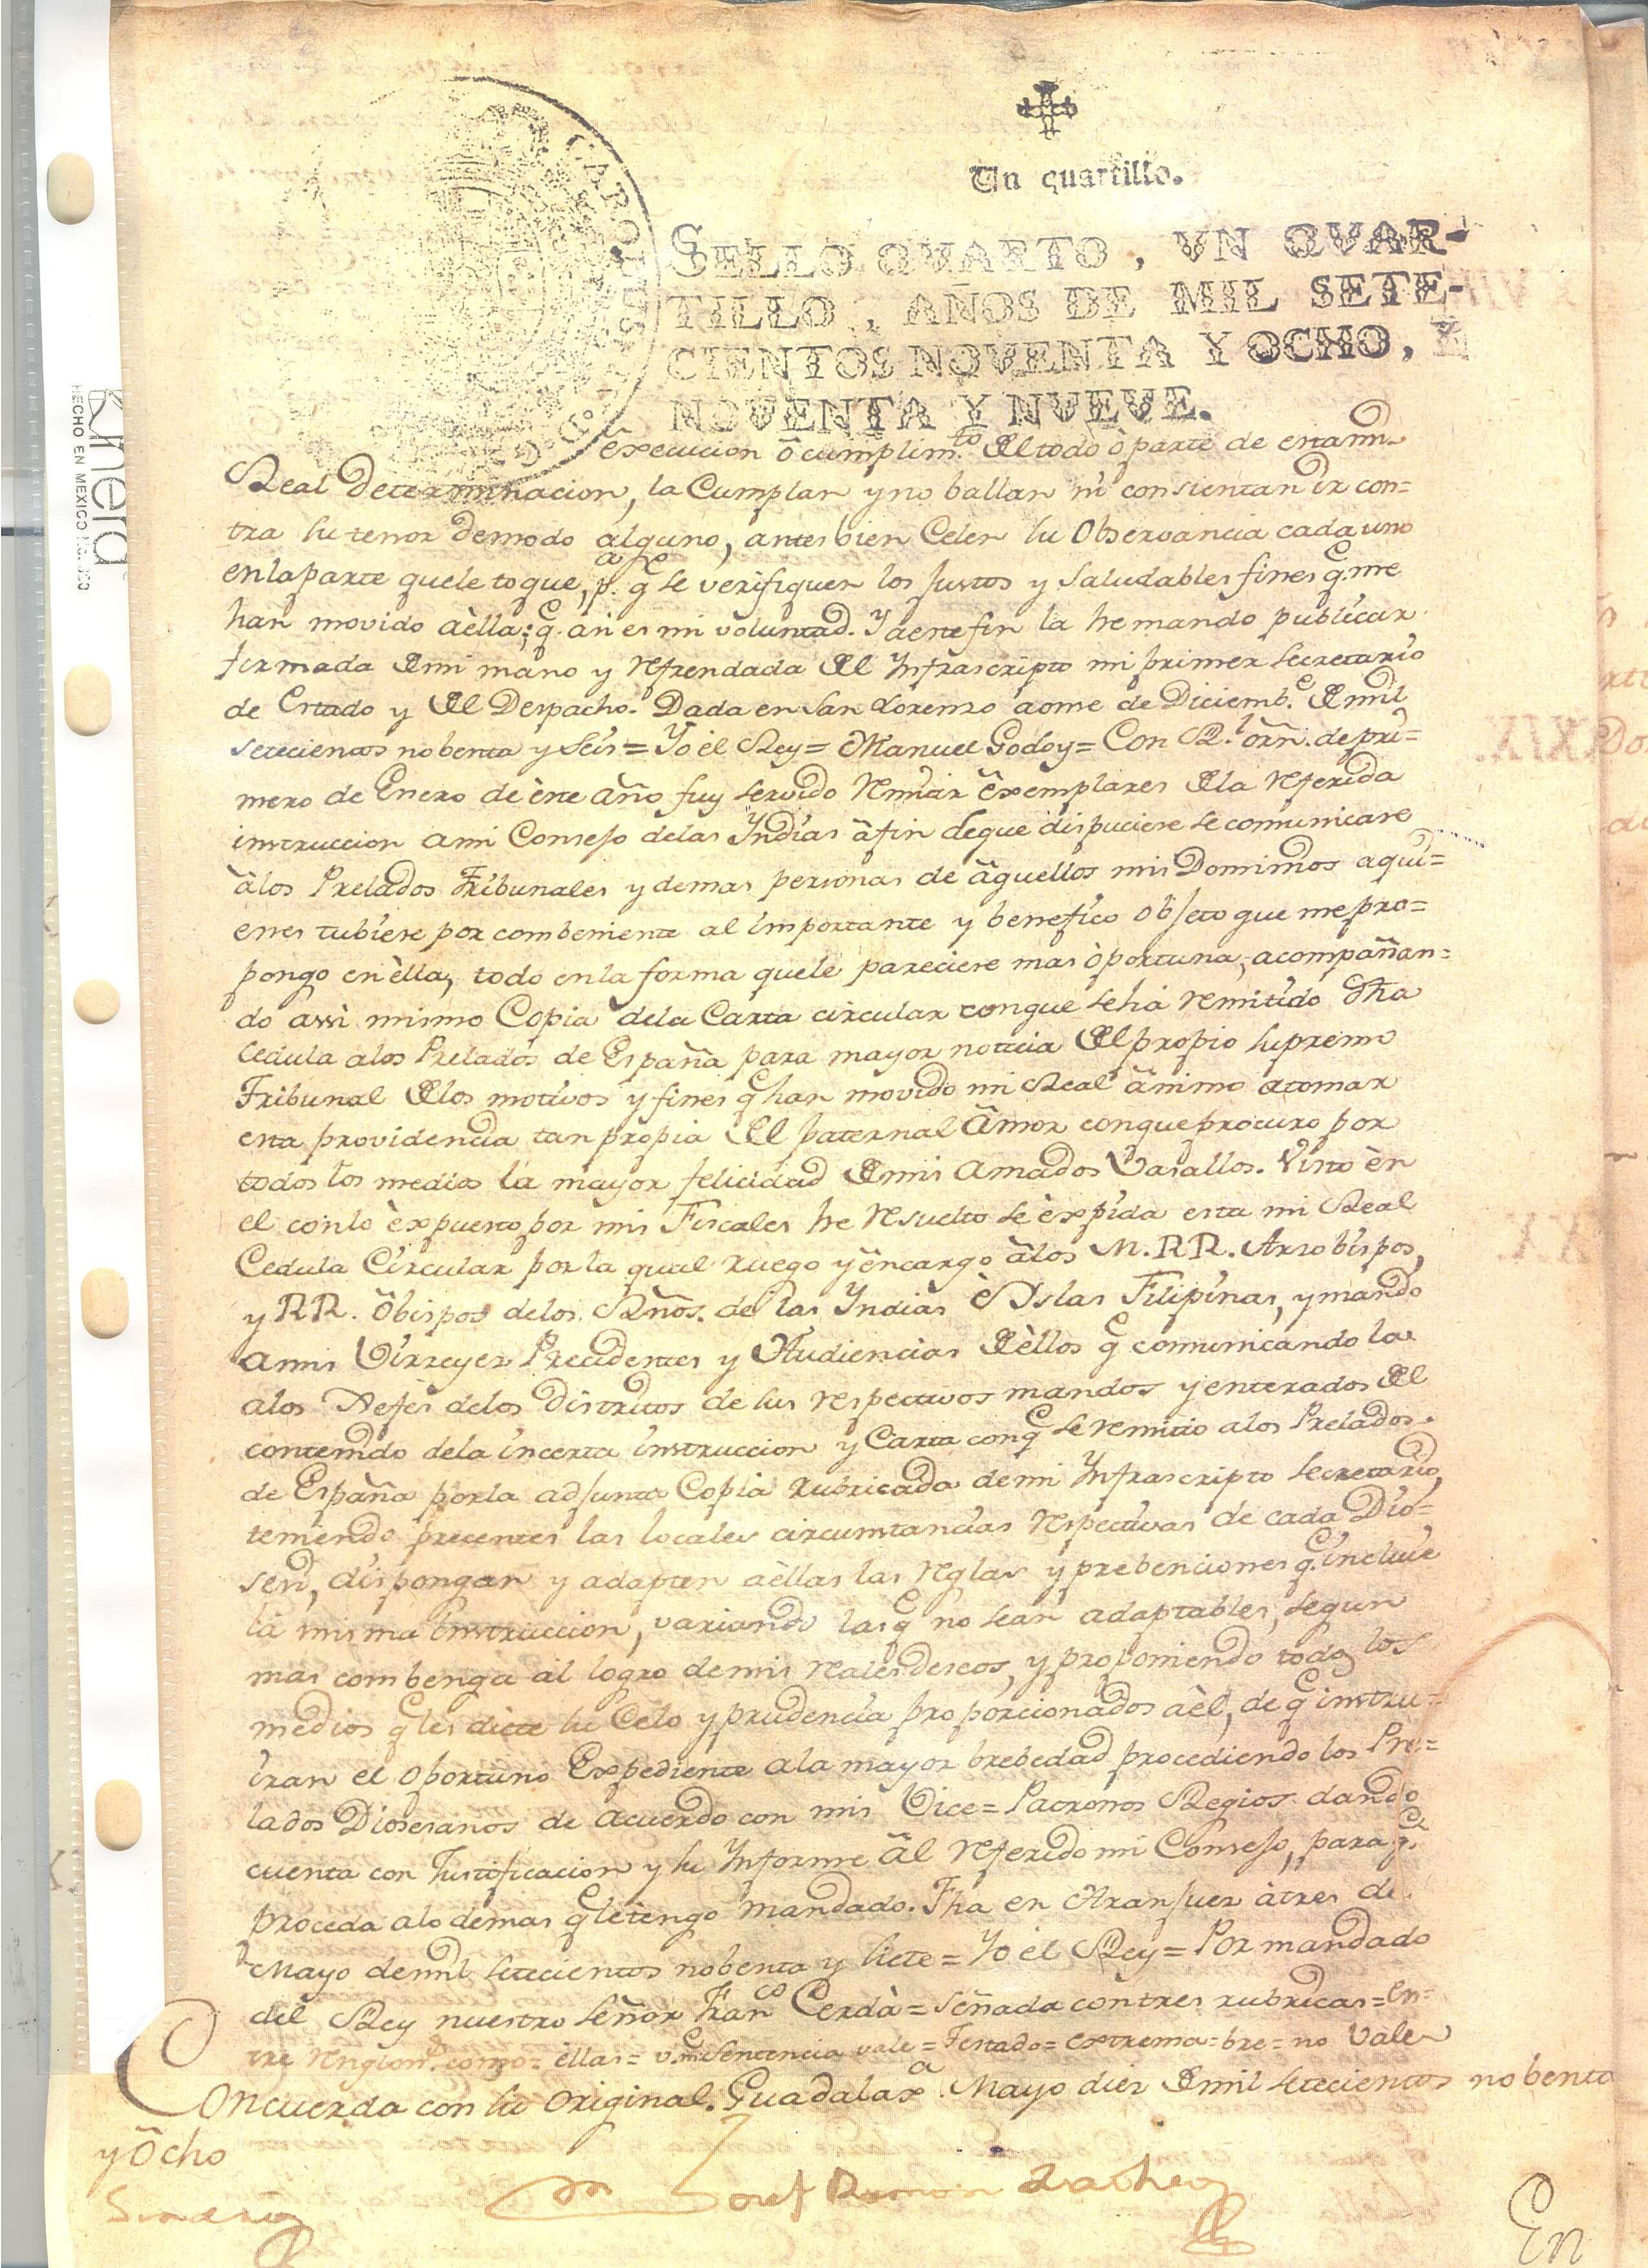 Un quartillo.
SELLO QVARTO, VN QVAR-
TILLO, AÑOS DE MIL SETE-
CIENTOS NOVENTA Y OCHO, Y
NOVENTA Y NVEVE.
CAROLUS
HECHO EN MEXICO
execucion ò cumplim.to del todo ò parte de esta mi
Real Determinacion, la Cumplan y no ballan ni consientan ir con=
tra su tenor de modo alguno, antes bien Celen su Observancia cada uno
en la parte que le toque, p.a q.e se verifiquen los Justos y Saludables fines q.e me
han movido aèlla; q.e asi es mi voluntad. Y a este fin la he mando publicar
firmada de mi mano y refrendada del Infrascripto mi primer Secretario
de Estado y del Despacho. Dada en San Lorenzo a onse de Diciemb.e de mil
setecientos nobenta y Seis = Yo el Rey = Manuel Godoy = Con R.l orñ. de pri=
mero de Enero de ère año fuy servido remitir exemplares de la referida
instruccion a mi Consejo de las Yndias â fin de que dispuciese se comunicase
â los Prelados Tribunales y demas personas de âquellos mis Dominios a qui=
enes tubiese por combeniente al importante y benefico objeto que me pro=
pongo en èlla, todo en la forma que le pareciese mas òportuna, acompañan=
do assi mismo Copia de la Carta circular con que se há remitido dha
Cedula a los Prelados de España para mayor noticia del propio Supremo
Tribunal de los motivos y fines q.e han movido mi Real ânimo a tomar
esta providencia tan propia del paternal Âmor con que procuro por
todos los medios la mayor felicidad de mis amados Vasallos. Visto èn
el con lo èxpuesto por mis Fiscales he resuelto se èxpida esta mi Real
Cedula Circular por la qual ruego y êncargo â los M. RR. Arzobispos,
y RR. Ôbispos de los Rños. de las Yndias è Yslas Filipinas, y mando
a mis Virreyes Precidentes y Audiencias de èllos q.e comunicando la
a los Xefes de los Distritos de sus respectivos mandos y enterados del
contenido de la incerta instruccion y Carta con q.e se remitio a los Prelados
de España por la adjunta Copia rubricada de mi Infrascripto Secretario,
teniendo precentes las locales circunstancias respectivas de cada Dio=
sesi, dispongan y adapten aèllas las reglas y prebenciones q.e incluie
la misma Instruccion, variando las q.e no sean adaptables, segun
mas combenga al logro de mis reales deseos, y proponiendo todos los
medios q.e les dicte su Celo y prudencia proporcionados aèl, de q.e instru=
iran el oportuno Expediente a la mayor brebedad procediendo los Pre=
lados Diosesanos de acuerdo con mis Vice=Patronos Regios dando
cuenta con Justificacion y su Informe âl referido mi Consejo, para q.e
proceda a lo demas q.e le tengo mandado. Fha en Aranjuez àtres de
Mayo de mil setecientos nobenta y Siete = Yo èl Rey = Por mandado
del Rey nuestro Señor Fran.co Cerdà = Señada con tres rubricas = En=
tre renglon.s como = èllas = Sentencia vale = Testado = extrema = bre = no Vale
Concuerda con su original. Guadalax.a Mayo diez de mil setecientos nobenta
y Ôcho
Josef Ramon
En